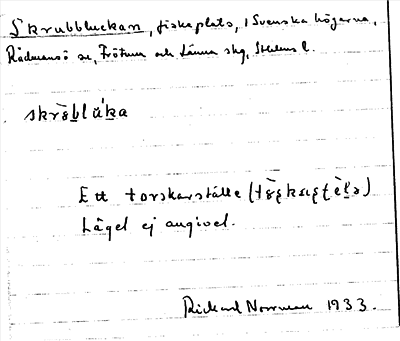 Skrubbluckan, fiskeplats, i Svenska högarna,
Rådmansö sn, Frötuna och Länna skg, Sthlms l.
skrèb̲lúk̲a
Ett torskaställe
Läget ej angivet.
Rickard Norrman 1933.